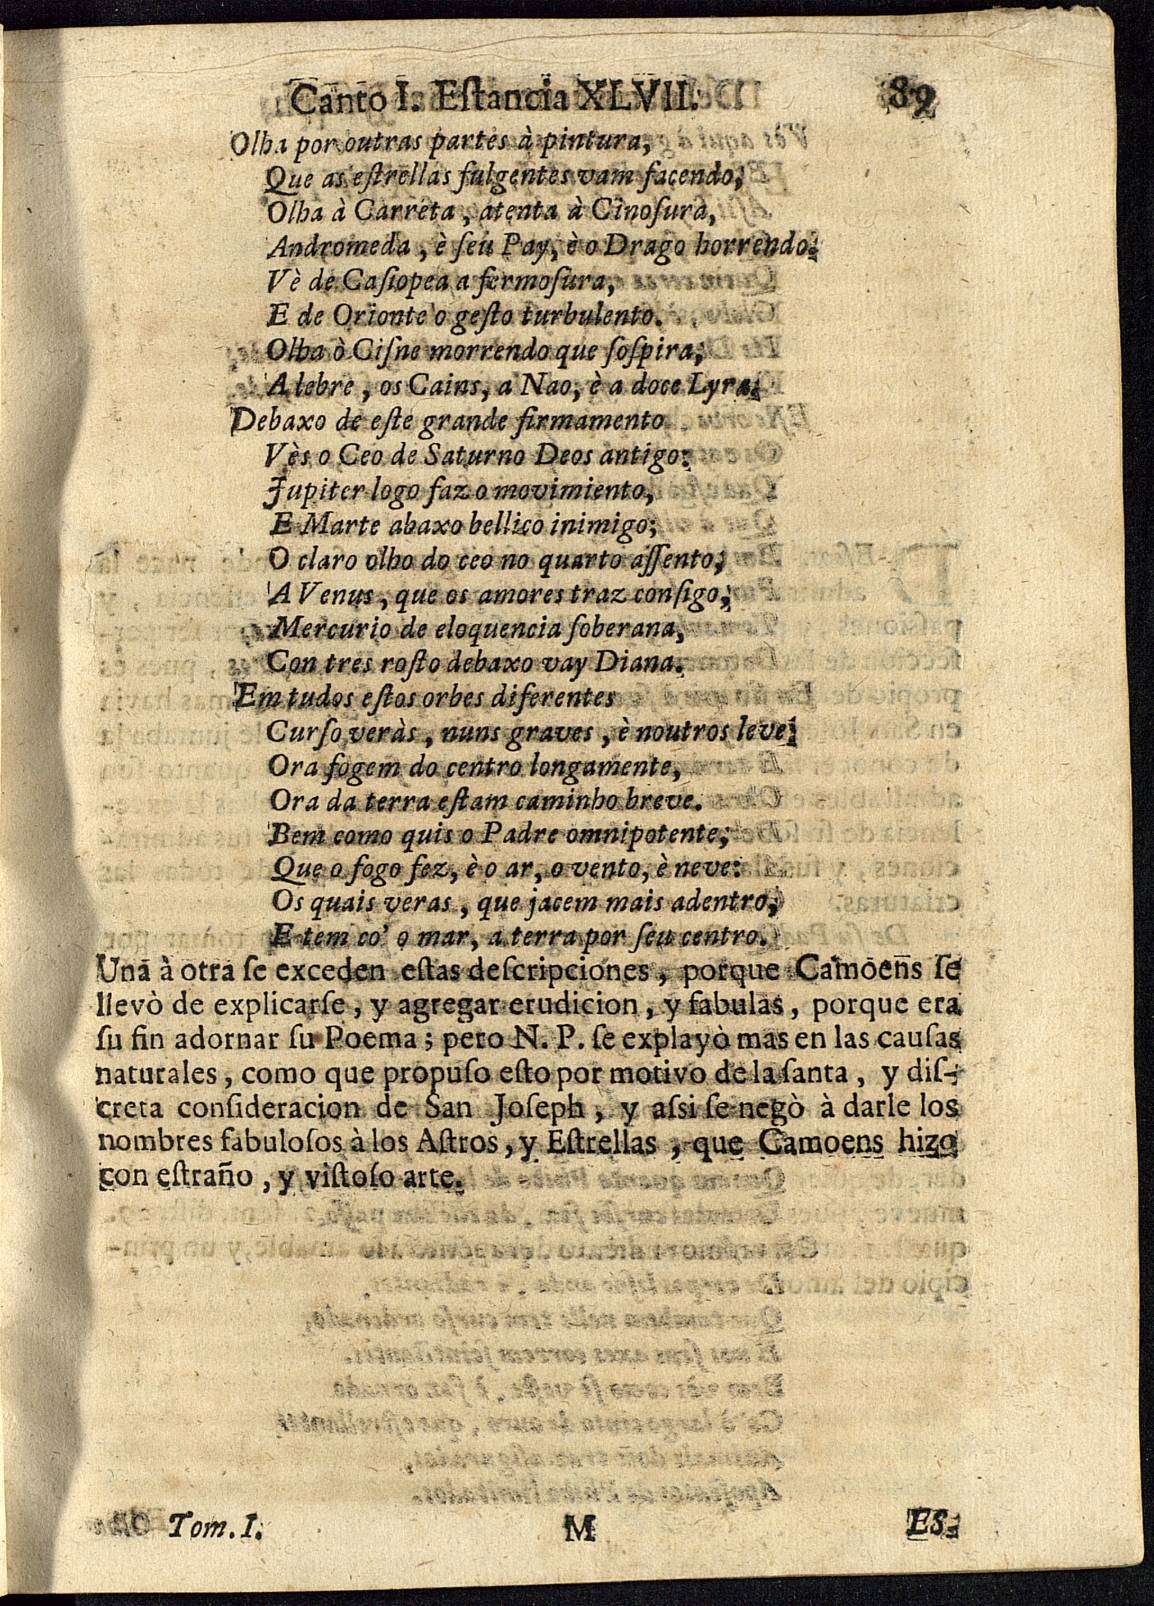 Canto I. Eſtancia XLVII. 89
Olha por outras partes à pintura,
Que as eſtrellas fulgentes vam facendo,
Olha à Carreta, atenta à Cinoſura,
Andromeda, è ſeu Pay, è o Drago horrendo:
Vè de Caſiopea a fermoſura,
E de Orionte o geſto turbulento.
Olha ò Ciſne morrendo que ſoſpira,
A lebre, os Cains, a Nao, è a doce Lyra.
Debaxo de eſte grande firmamento
Vès o Ceo de Saturno Deos antigo:
Jupiter logo faz o movimiento,
E Marte abaxo bellico inimigo;
O claro olho do ceo no quarto aſſento;
A Venus, que os amores traz conſigo,
Mercurio de eloquencia ſoberana,
Con tres roſto debaxo vay Diana.
Em tudos eſtos orbes diferentes
Curſo veràs, nuns graves, è noutros leve
Ora fogem do centro longamente,
Ora da terra eſtam caminho breve.
Bem como quis o Padre omnipotente;
Que o fogo fez, è o ar, o vento, è neve:
Os quais veras, que jacem mais adentro,
E tem co' o mar, a terra por ſeu centro.
Una à otra ſe exceden eſtas deſcripciones, porque Camoens ſe
llevò de explicarſe, y agregar erudicion, y fabulas, porque era
ſu fin adornar ſu Poema; pero N. P. ſe explayò mas en las cauſas
naturales, como que propuſo eſto por motivo de la ſanta, y diſ-
creta conſideracion de San Joſeph, y aſsi ſe negò à darle los
nombres fabuloſos à los Aſtros, y Eſtrellas, que Camoens hizo
con eſtraño, y viſtoſo arte.
Tom. I. M ES-